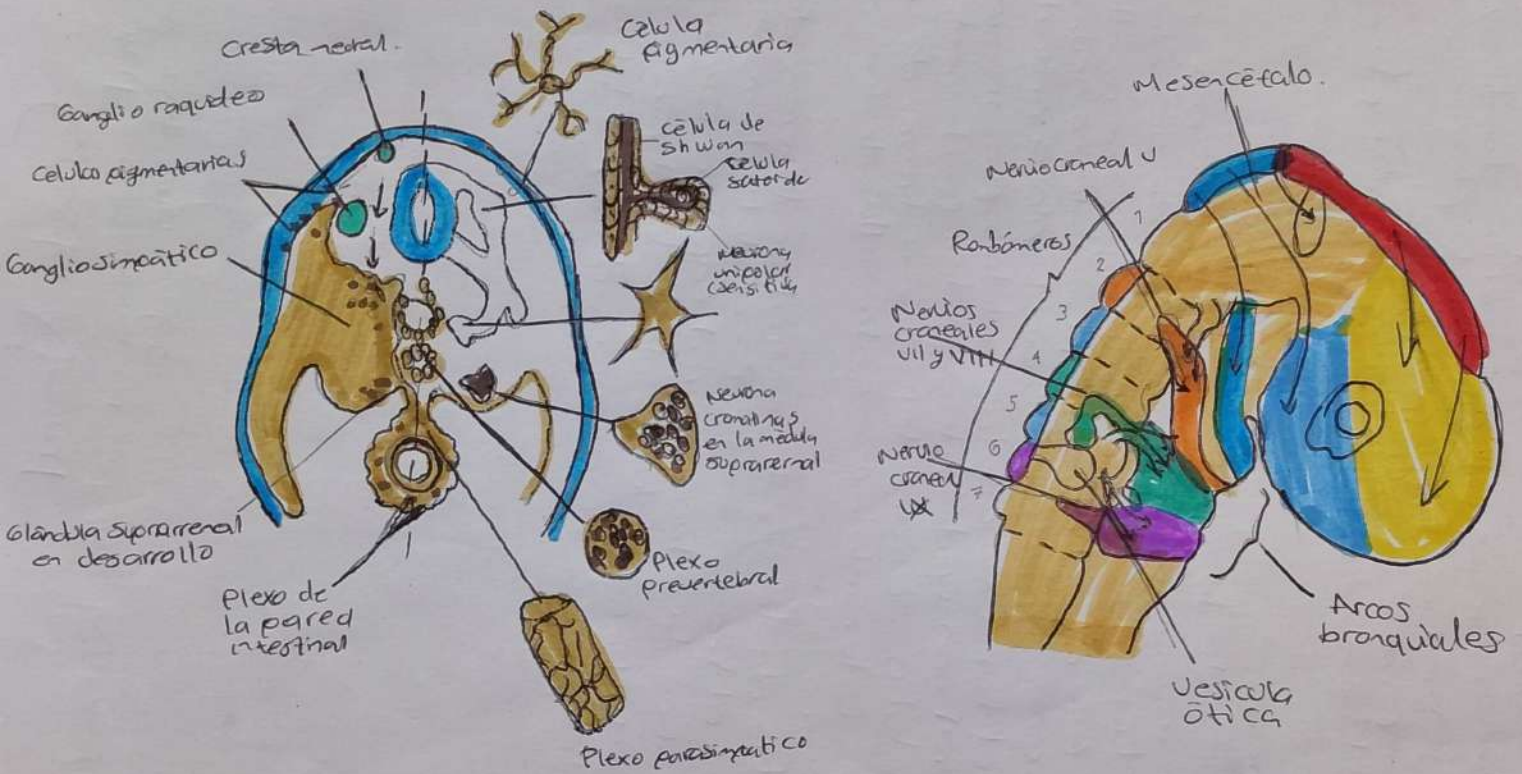 Cresta neural.
Ganglio raquideo
Celulas pigmentarias
Ganglio simpático
Glándula Suprarrenal
en desarrollo
Plexo de
la pared
intestinal
Célula
pigmentaria
Célula de
Shwan
Celula
Neurona
unipolar
Neurona
cromatinas
en la médula
suprarrenal
Plexo
prevertebral
Plexo parasimpatico
Mesencéfalo.
Nervio craneal V
Rombómeros
1
2
3
4
5
6
7
Nervios
craneales
VII y VIII
Nervio
craneal
IX
Arcos
bronquiales
Vesicula
ótica